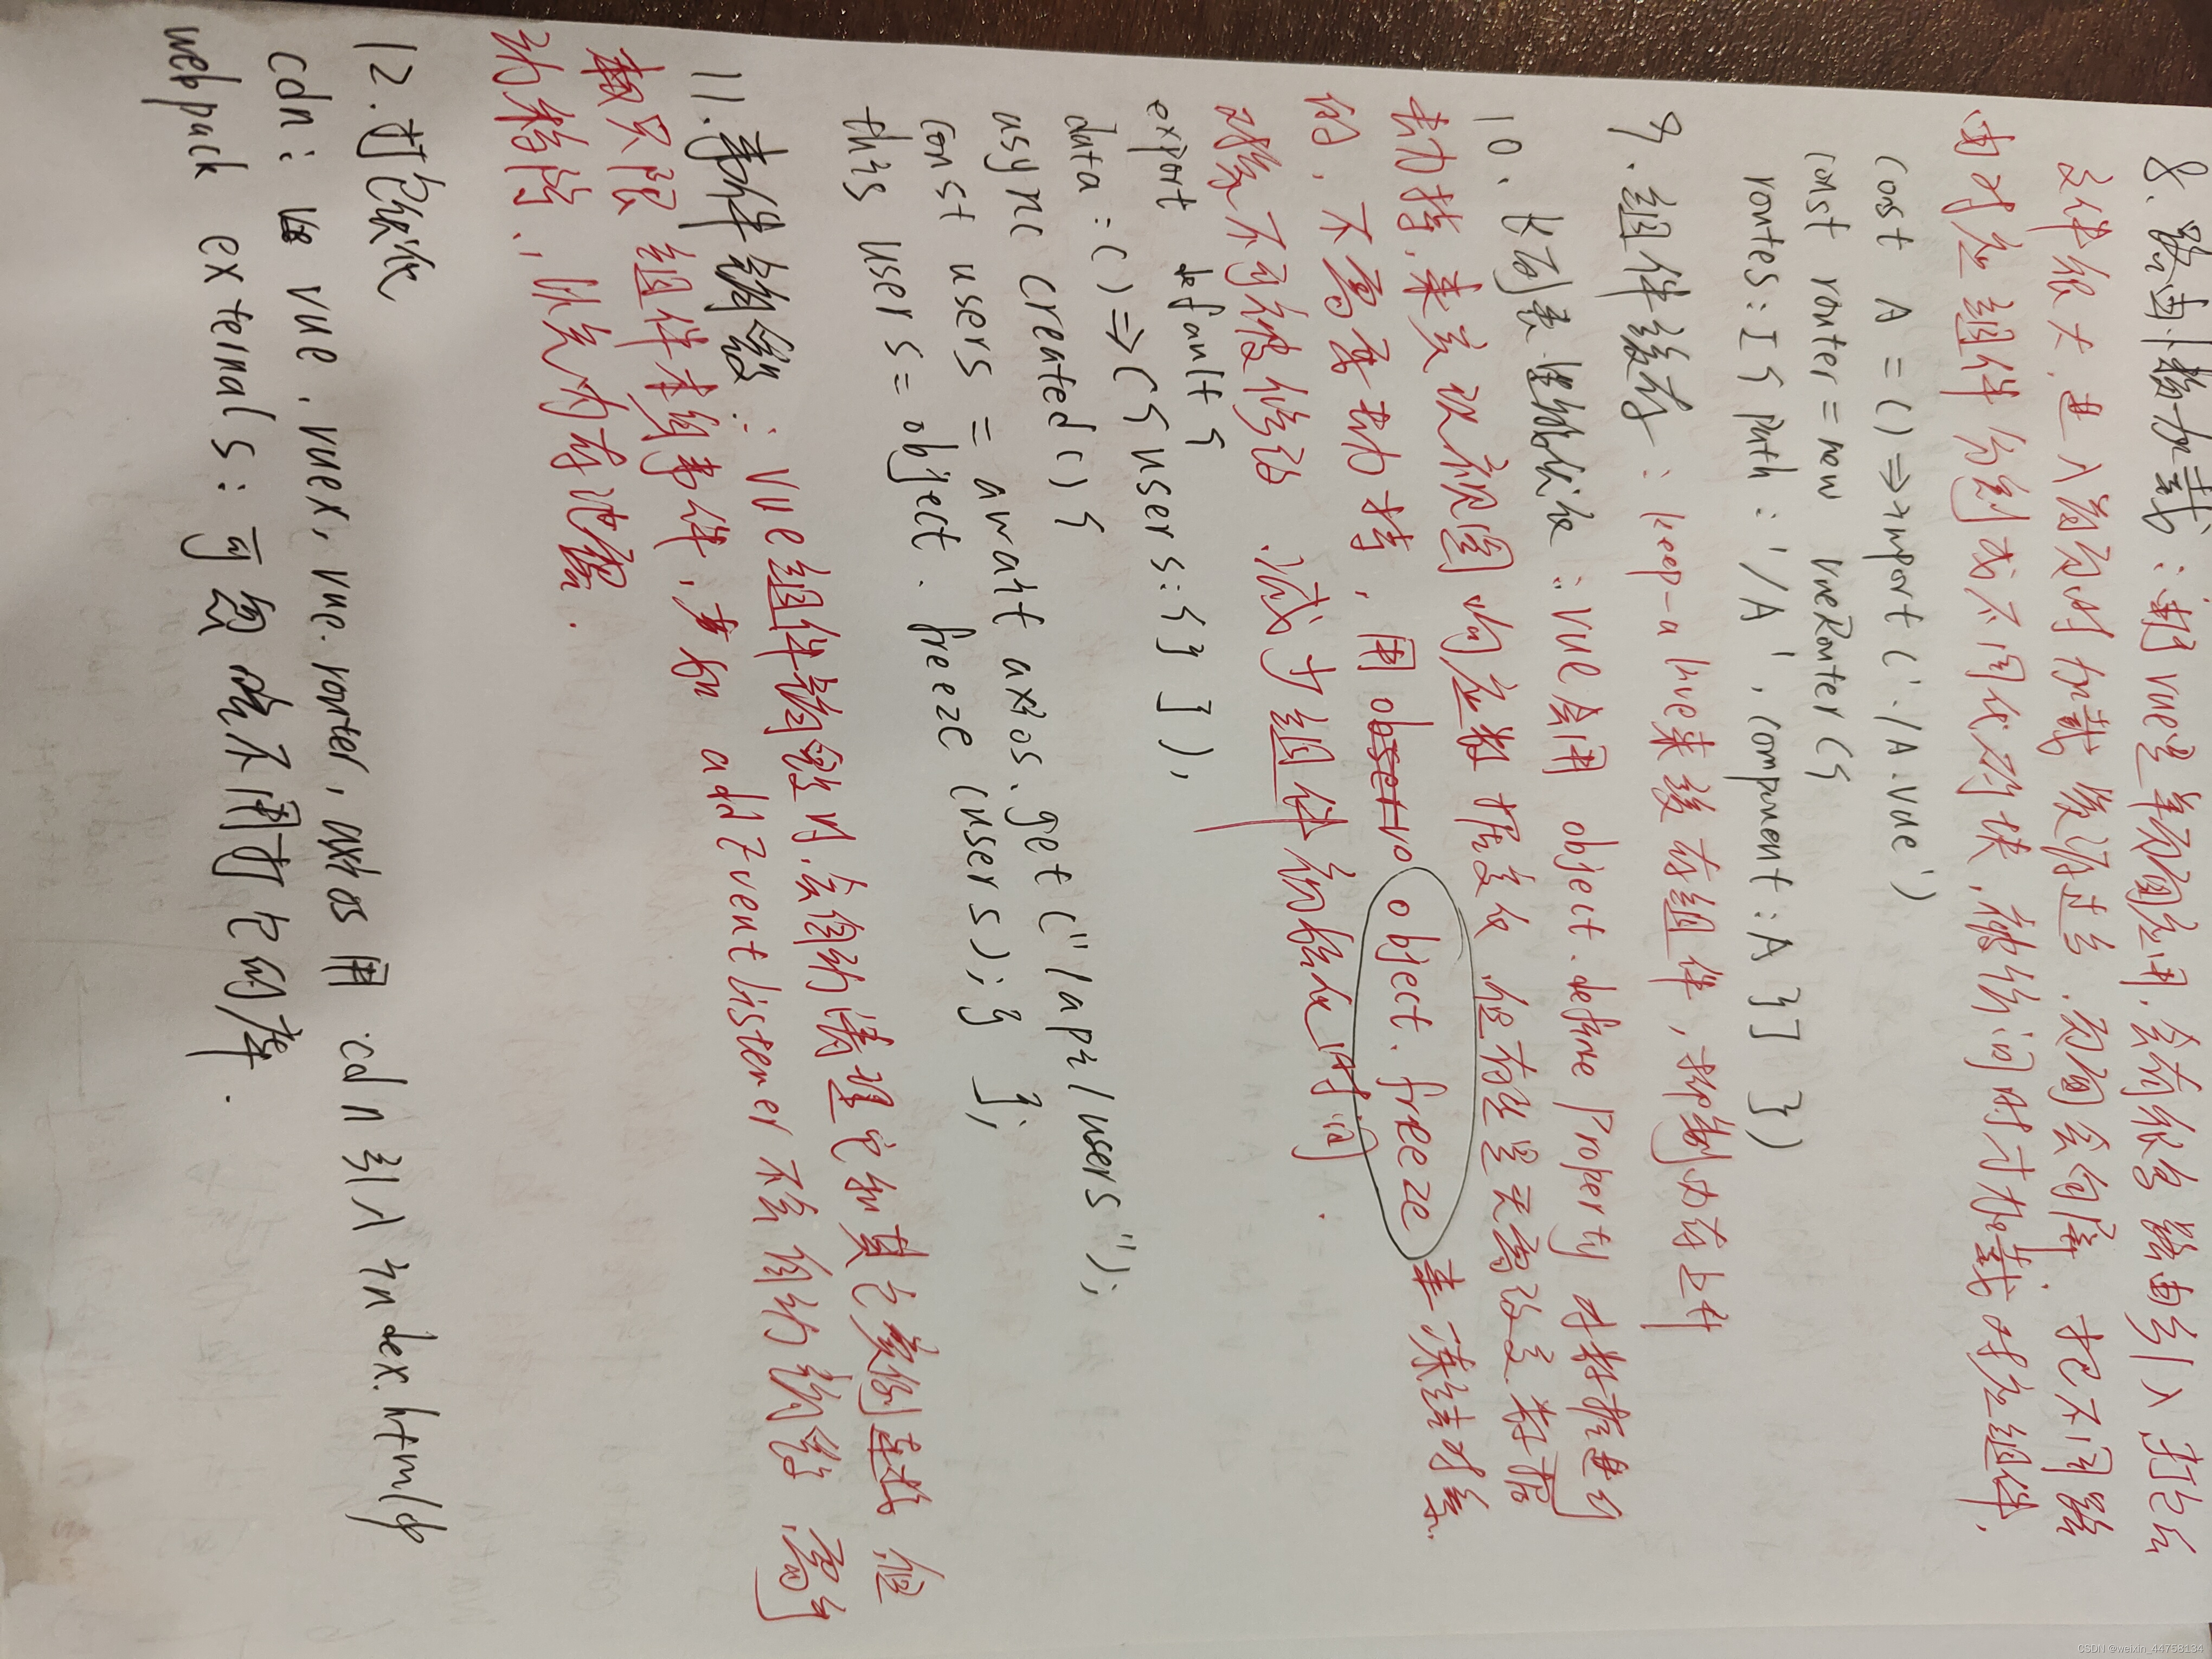 8.路由懒加载:由于vue是单页面应用,会有很多路由引入打包后
文件很大,进入首页时加载资源过多,页面会白屏,把不同路
由对应组件分割成不同代码块,被访问时才加载对应组件.
const A = () => import('./A.vue')
const router = new VueRouter({
routes: [{ path: '/A', component: A }] })
9.组件缓存:keep-alive来缓存组件,抑制内存上升
10.长列表性能优化:vue会用 object.defineProperty 对数据进行
劫持,来实现视图响应数据变化,但有些是无需改变数据
的,不需要劫持,用 object.freeze 来冻结对象.
对象不可被修改,减少组件初始化时间.
export default {
data: () => ({ users: {} }),
async created() {
const users = await axios.get("/api/users");
this.users = object.freeze(users); } };
11.事件销毁:vue组件销毁时,会自动清理它和其它实例连接,但
只限组件本身事件,如 addEventListener 不会自动销毁,需手
动移除,以免内存泄露.
12.打包优化
cdn: vue, vuex, vue.router, axios 用 cdn 引入 index.html中
webpack externals: 可忽略不用打包的库.
CSDN @weixin_44758134